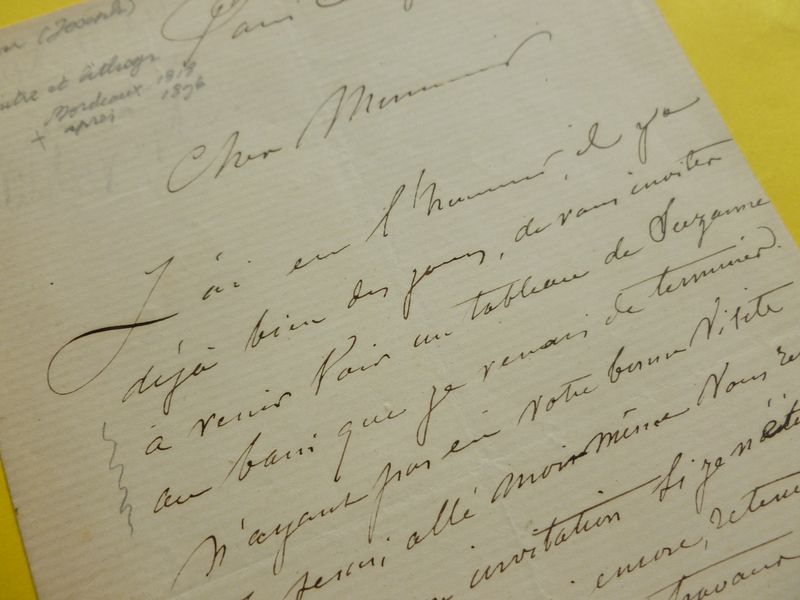 (Joseph)
et lithogr
Bordeaux 1818
+ après 1896
Paris
Cher Monsieur
J'ai eu l'honneur, il y a
déjà bien des jours, de vous inviter
à venir voir un tableau de Suzanne
au bain que je venais de terminer.
N'ayant pas eu votre bonne visite
serai allé moi même vous
invitation si je n'étai
encore, retenu
travaux